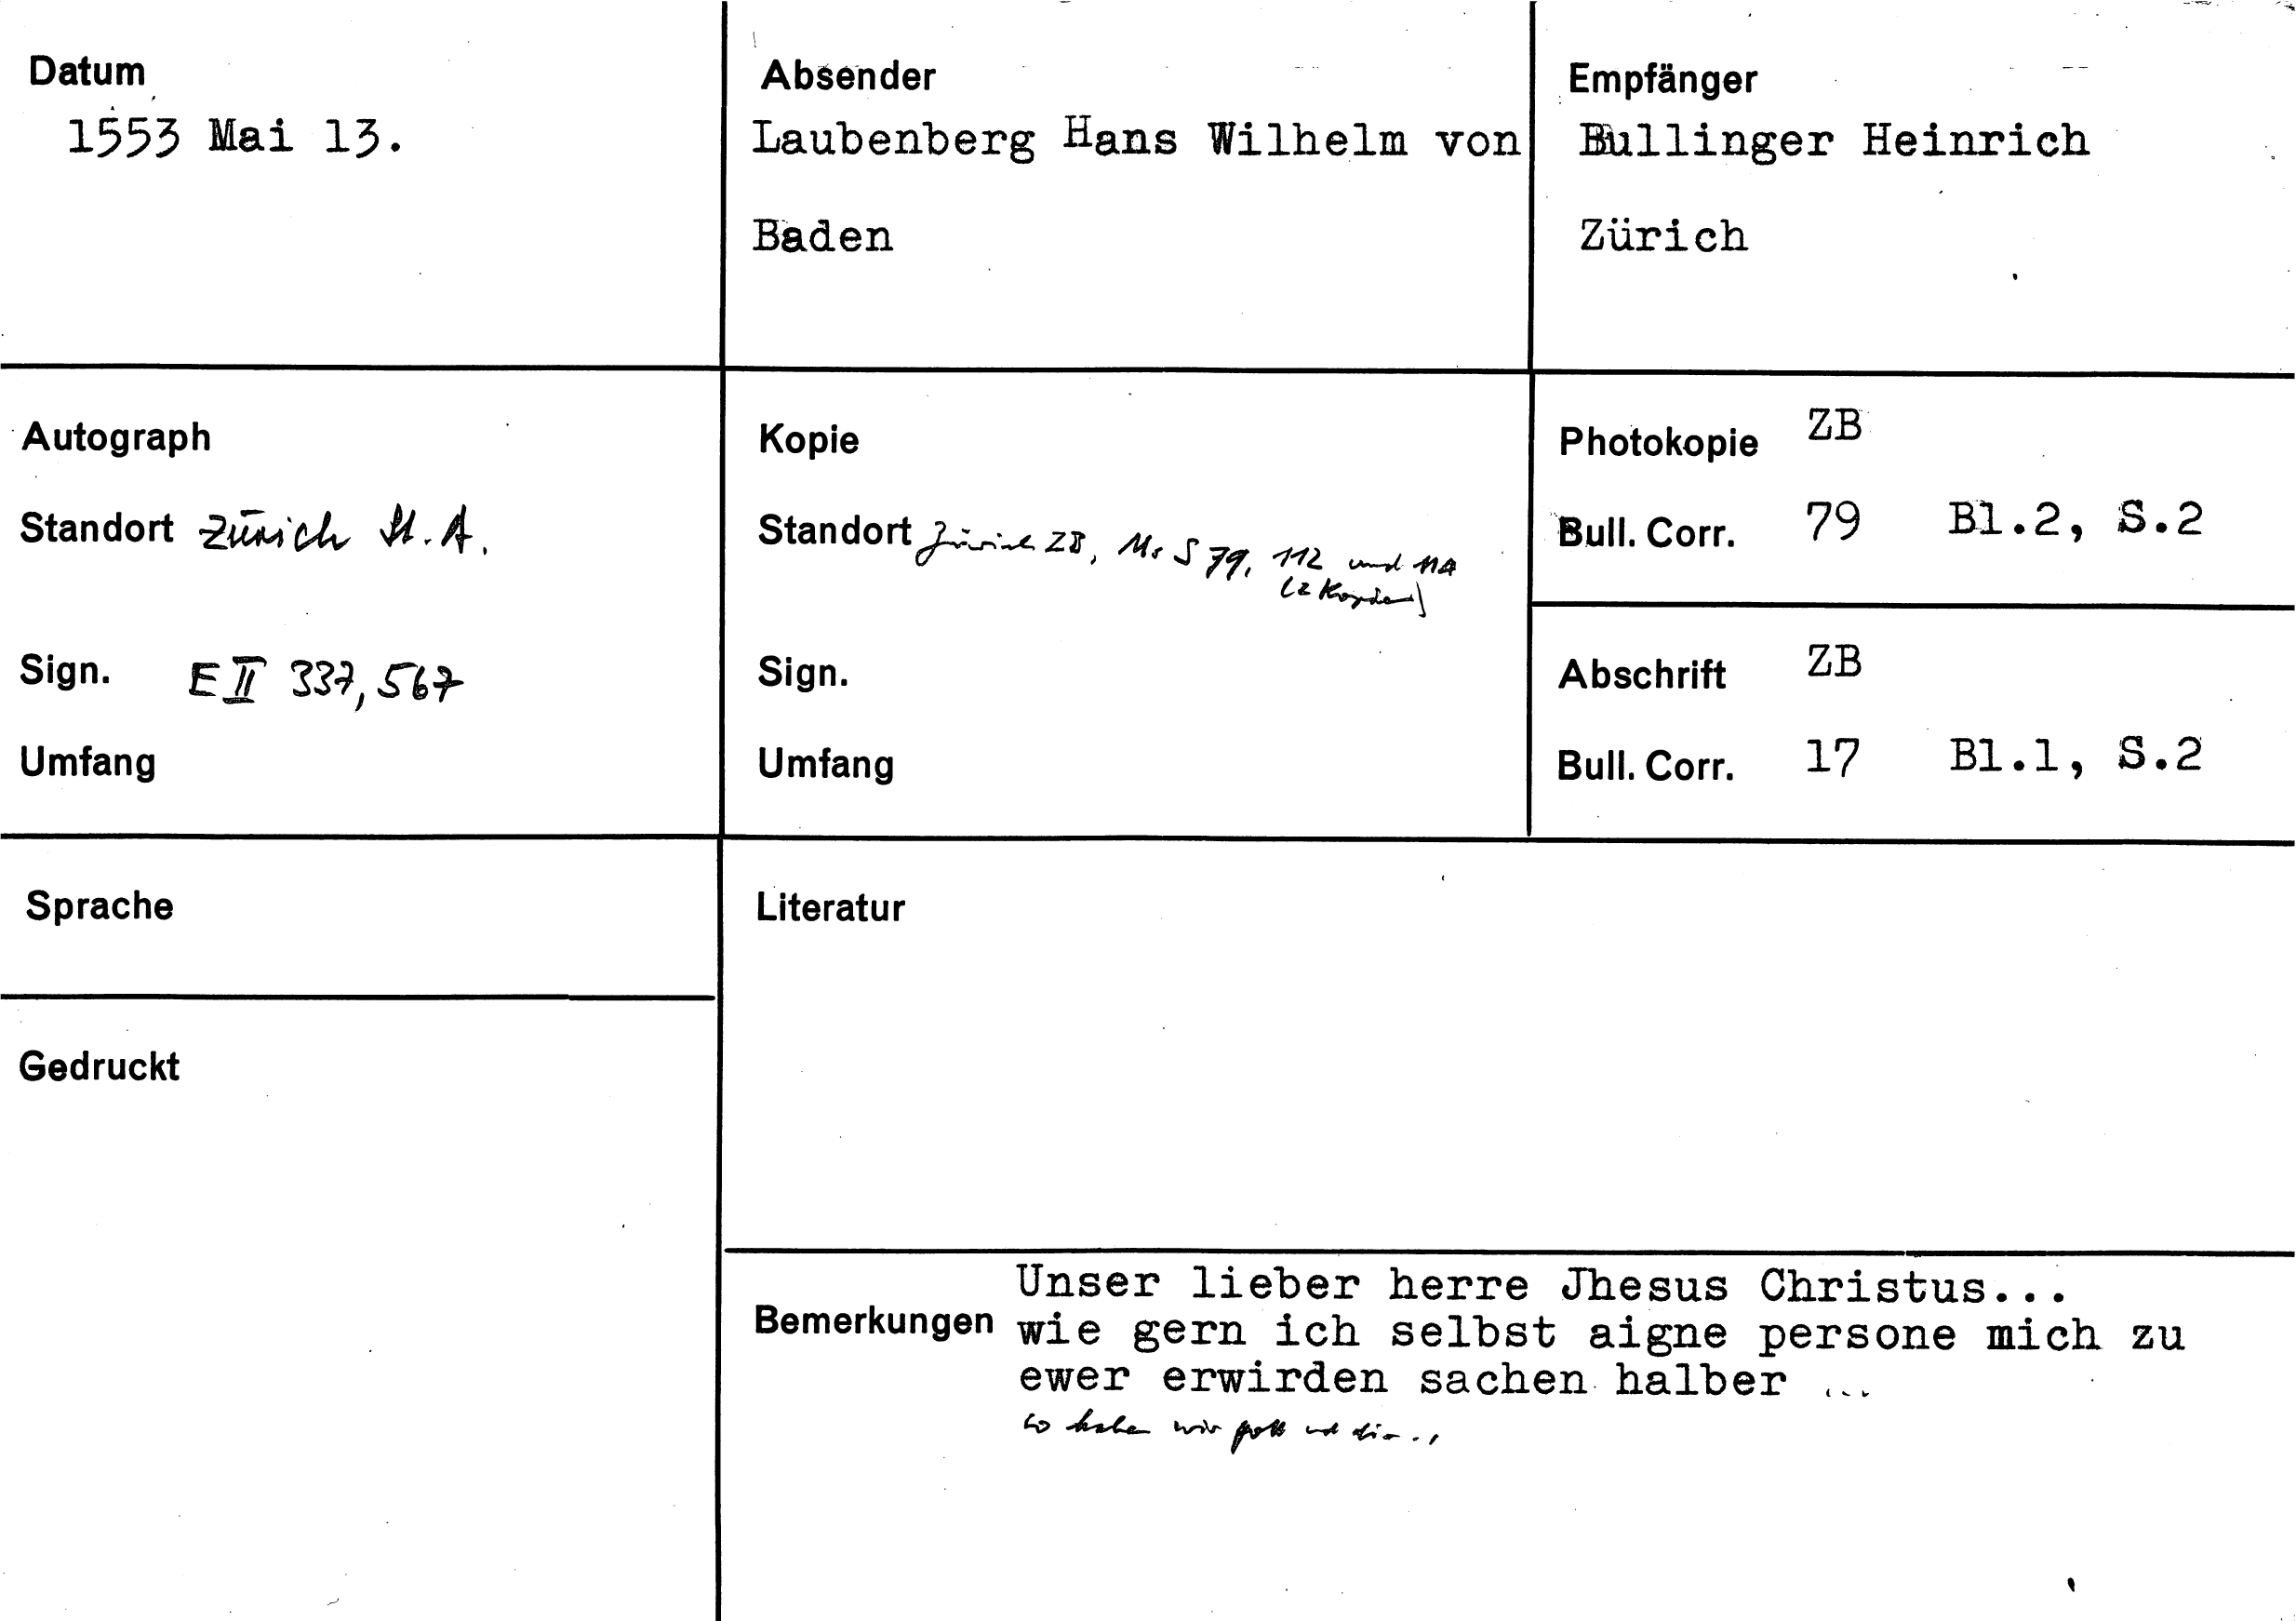 Datum
1553 Mai 13.
Absender
Laubenberg Hans Wilhelm von
Baden
Empfänger
Bullinger Heinrich
Zürich
Autograph
Standort Zürich St.A.
Sign. E II 337, 567
Umfang
Kopie
Standort Zürich ZB, Ms S 79, 112 und 114
(2 Kopien)
Sign.
Umfang
Photokopie ZB
Bull. Corr. 79 Bl.2, S.2
Abschrift ZB
Bull. Corr. 17 Bl.1, S.2
Sprache
Gedruckt
Literatur
Bemerkungen
Unser lieber herre Jhesus Christus...
wie gern ich selbst aigne persone mich zu
ewer erwirden sachen halber ...
So habe wir gott und die..